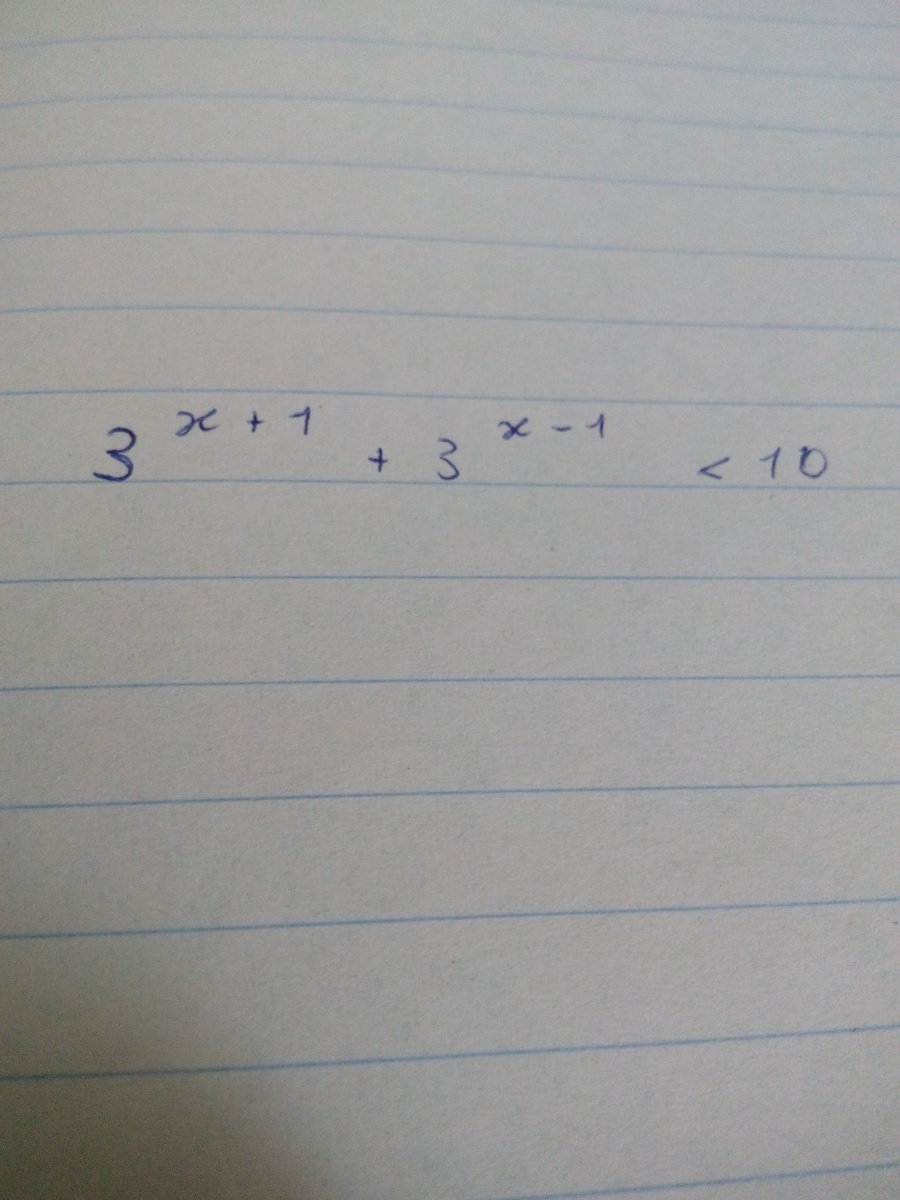 3^{x+1} + 3^{x-1} < 10